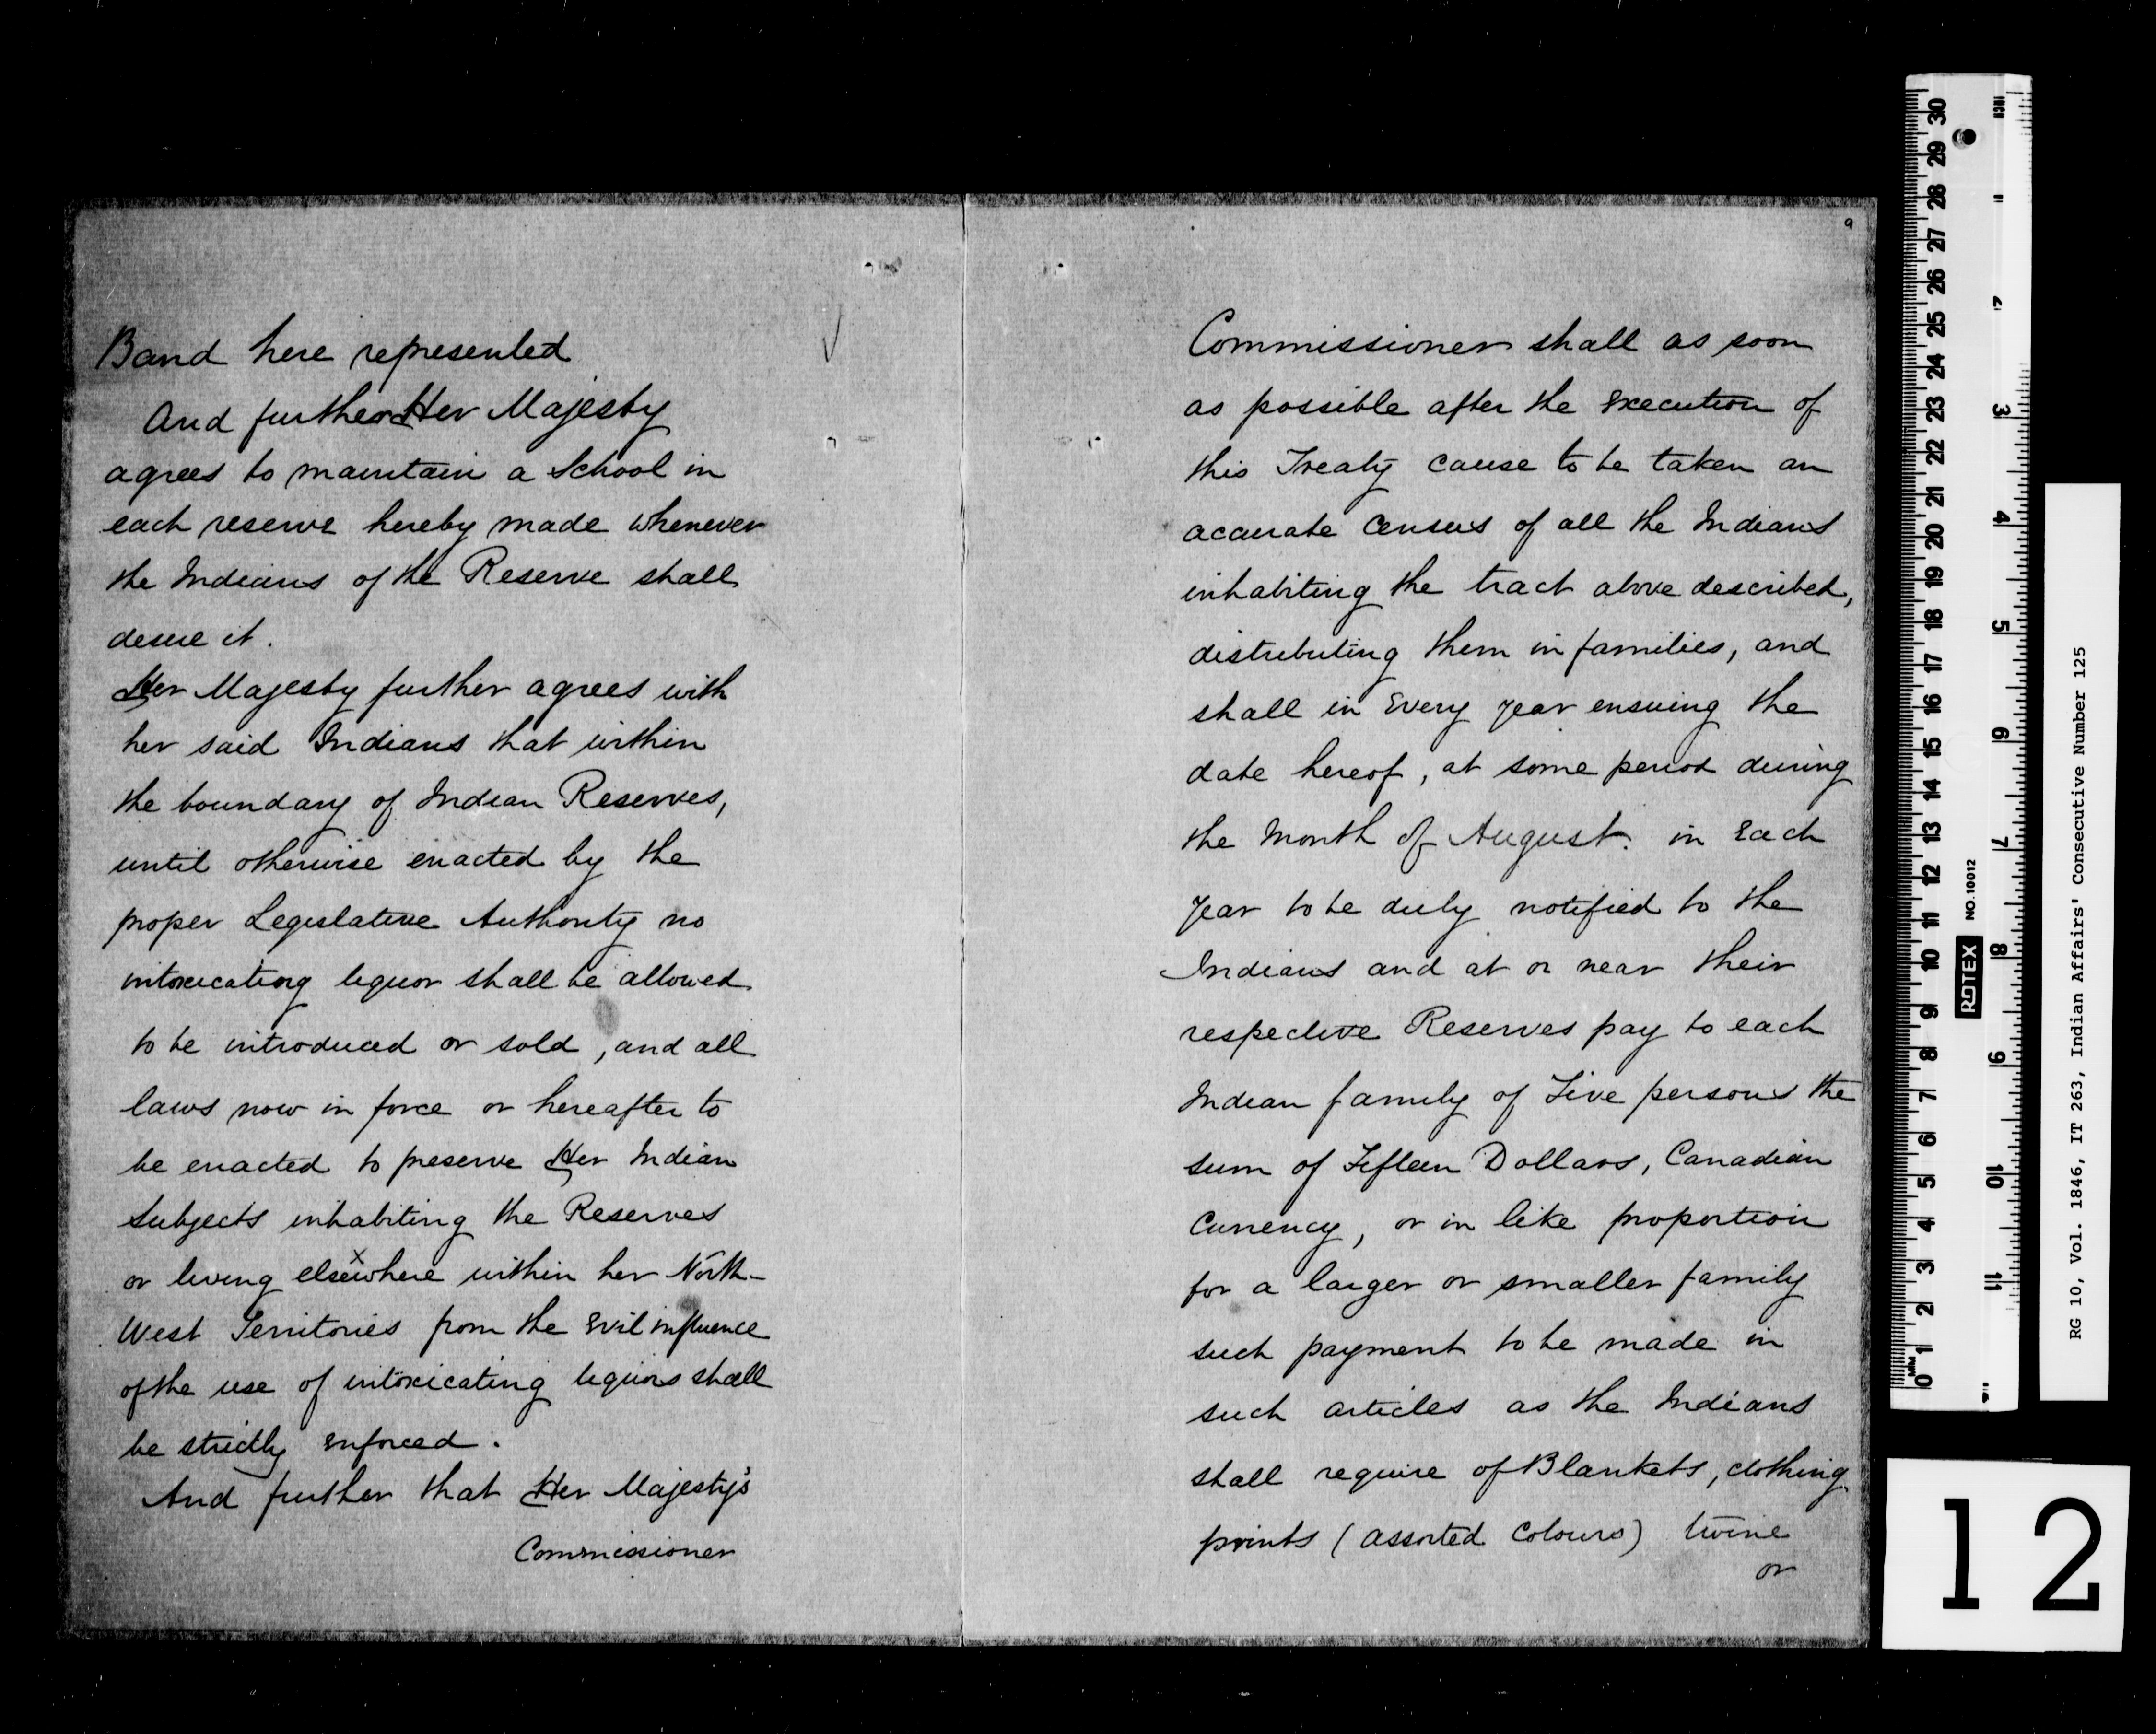 Band here represented
And further Her Majesty
agrees to maintain a School in
each reserve hereby made whenever
the Indians of the Reserve shall
desire it.
Her Majesty further agrees with
her said Indians that within
the boundary of Indian Reserves,
until otherwise enacted by the
proper Legislative Authority no
intoxicating liquor shall be allowed
to be introduced or sold, and all
laws now in force or hereafter to
be enacted to preserve Her Indian
Subjects inhabiting the Reserves
or living elsewhere within her North-
West Territories from the Evil influence
of the use of intoxicating liquors shall
be strictly enforced.
And further that Her Majesty's
Commissioner
9
Commissioner shall as soon
as possible after the execution of
this Treaty cause to be taken an
accurate census of all the Indians
inhabiting the tract above described,
distributing them in families, and
shall in Every year ensuing the
date hereof, at some period during
the Month of August. in Each
year to be duly notified to the
Indians and at or near their
respective Reserves pay to each
Indian family of Five persons the
sum of Fifteen Dollars, Canadian
Currency, or in like proportion
for a larger or smaller family
such payment to be made in
such articles as the Indians
shall require of Blankets, clothing
prints (assorted Colours) twine
or
30 29 28 27 26 25 24 23 22 21 20 19 18 17 16 15 14 13 12 11 10 9 8 7 6 5 4 3 2 1 0
MM
INCH
3 4 5 6 7 8 9 10 11
ROTEX NO. 10012
RG 10, Vol. 1846, IT 263, Indian Affairs' Consecutive Number 125
12